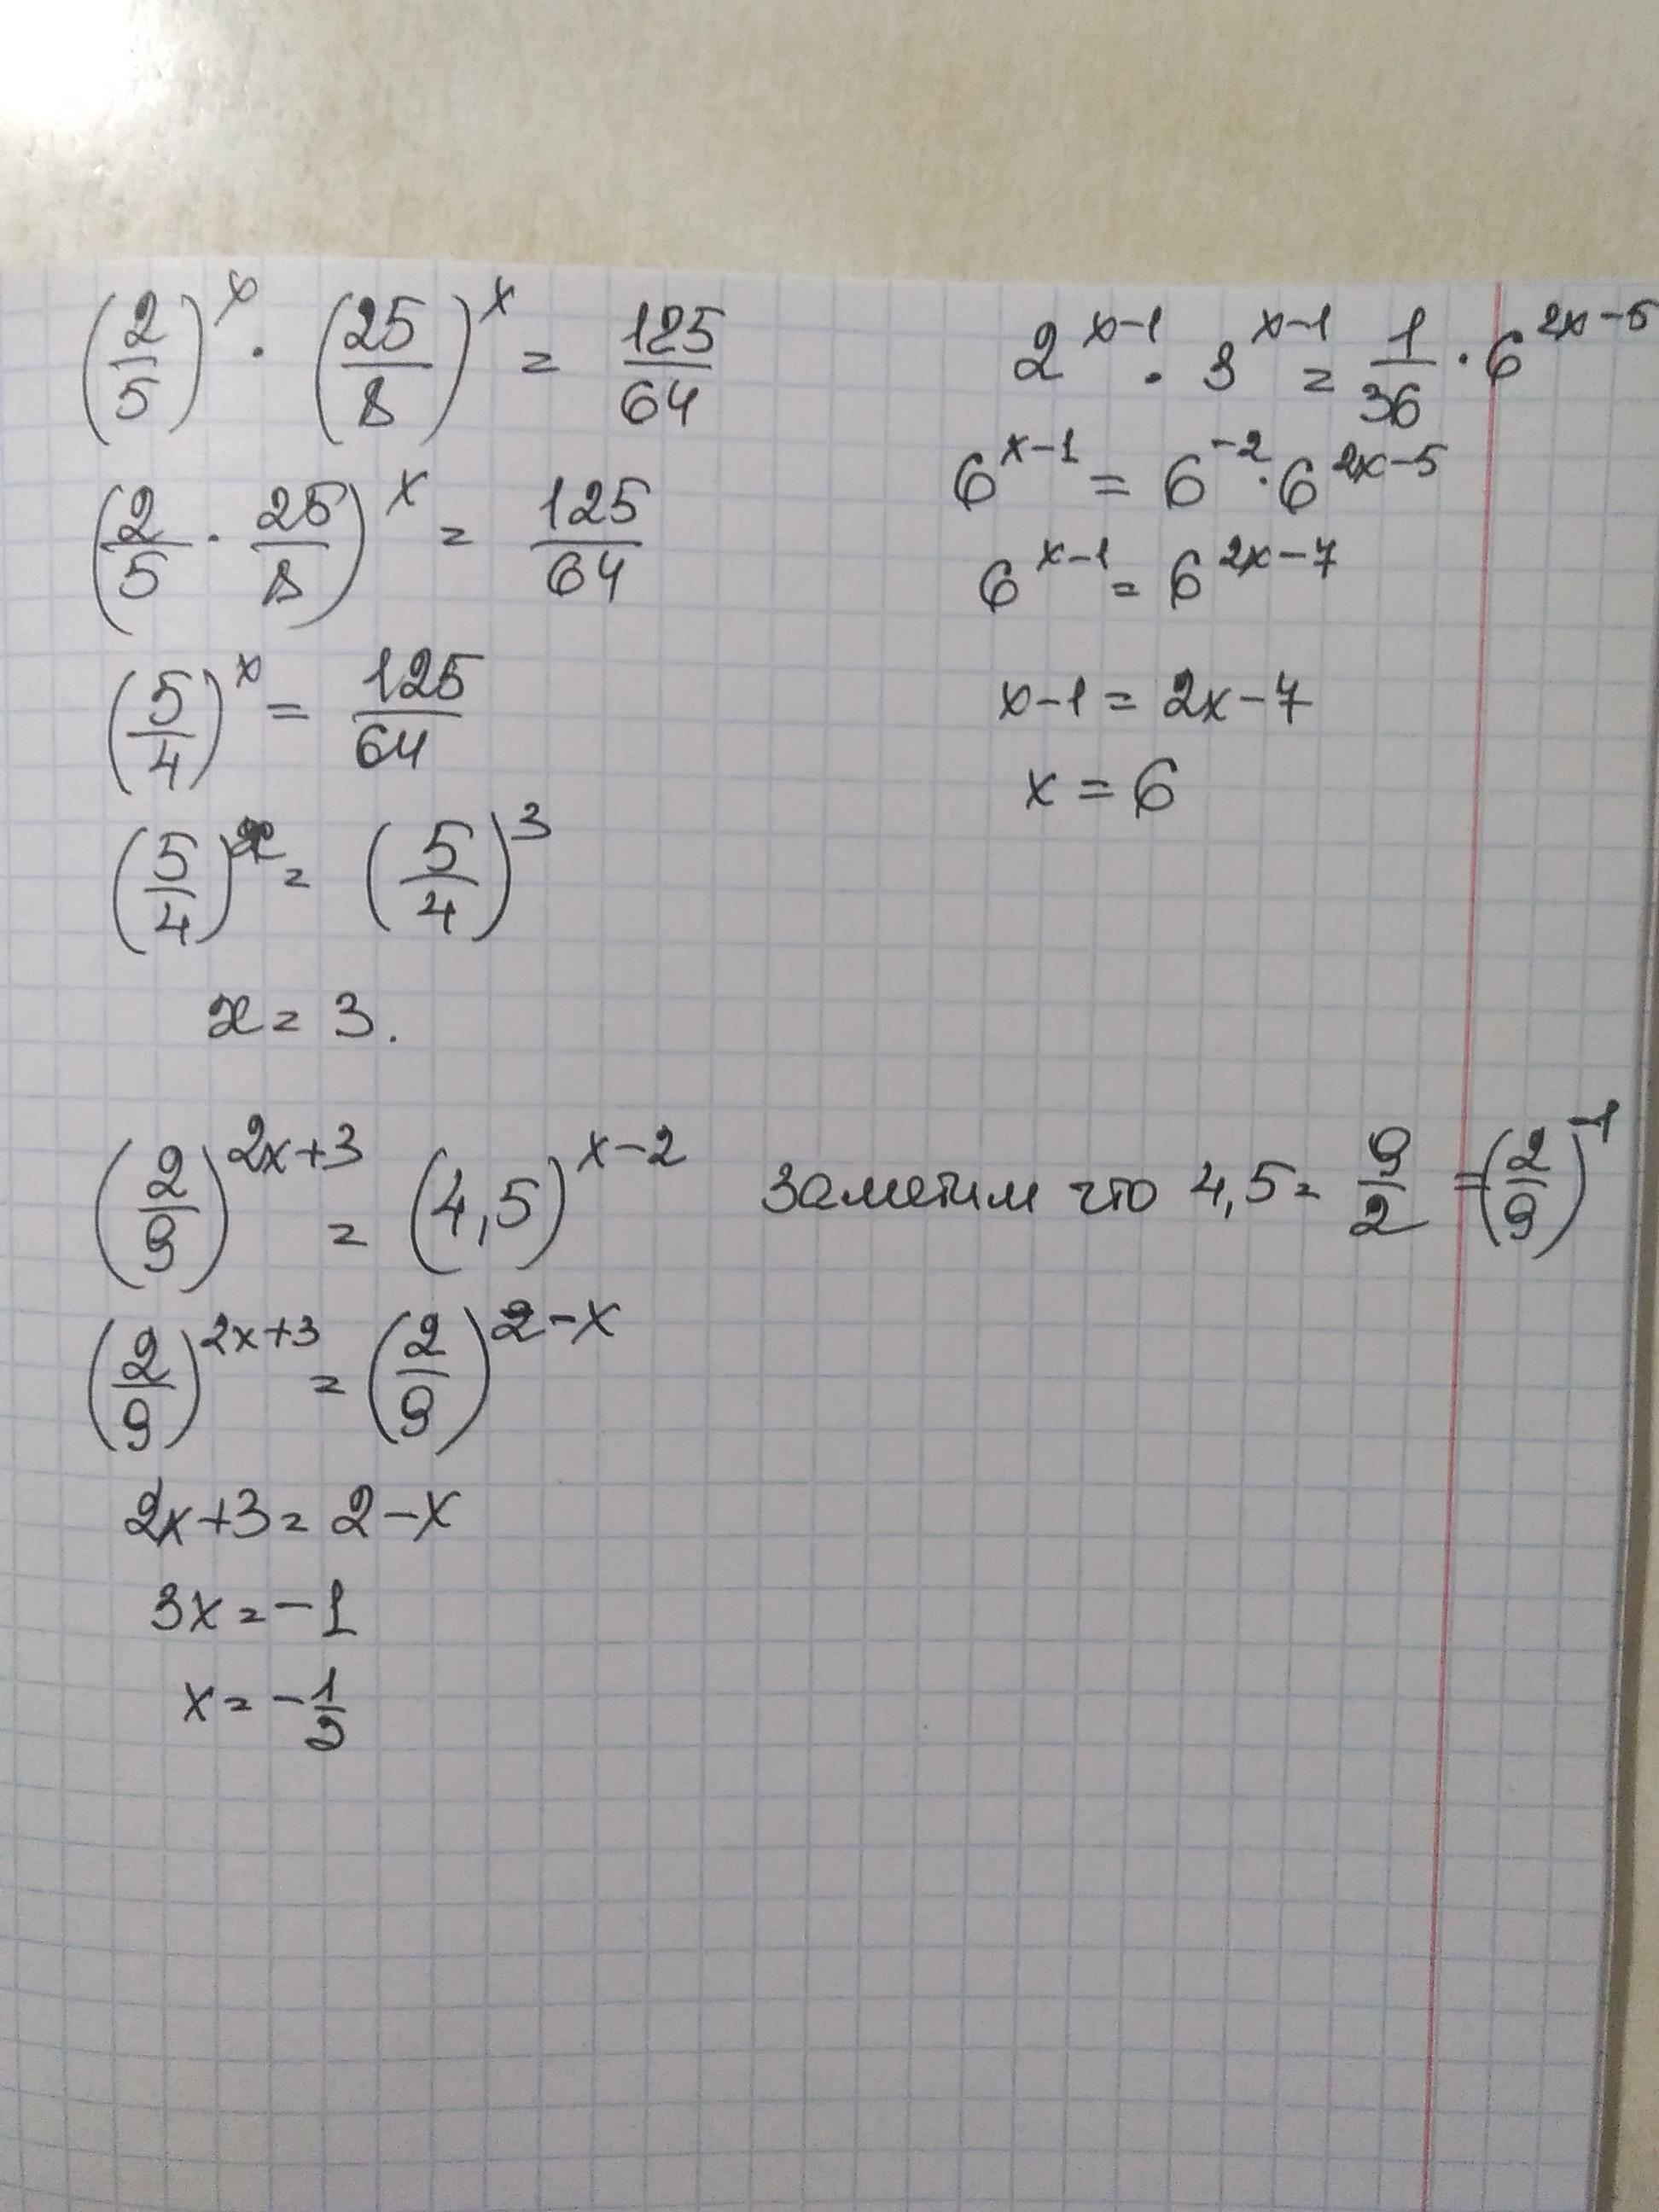 (2/5)^x · (25/8)^x = 125/64
(2/5 · 25/8)^x = 125/64
(5/4)^x = 125/64
(5/4)^x = (5/4)^3
x = 3.
2^(x-1) · 3^(x-1) = 1/36 · 6^(2x-5)
6^(x-1) = 6^(-2) · 6^(2x-5)
6^(x-1) = 6^(2x-7)
x-1 = 2x-7
x = 6
(2/9)^(2x+3) = (4,5)^(x-2) Заметим что 4,5 = 9/2 = (2/9)^(-1)
(2/9)^(2x+3) = (2/9)^(2-x)
2x+3 = 2-x
3x = -1
x = -1/3